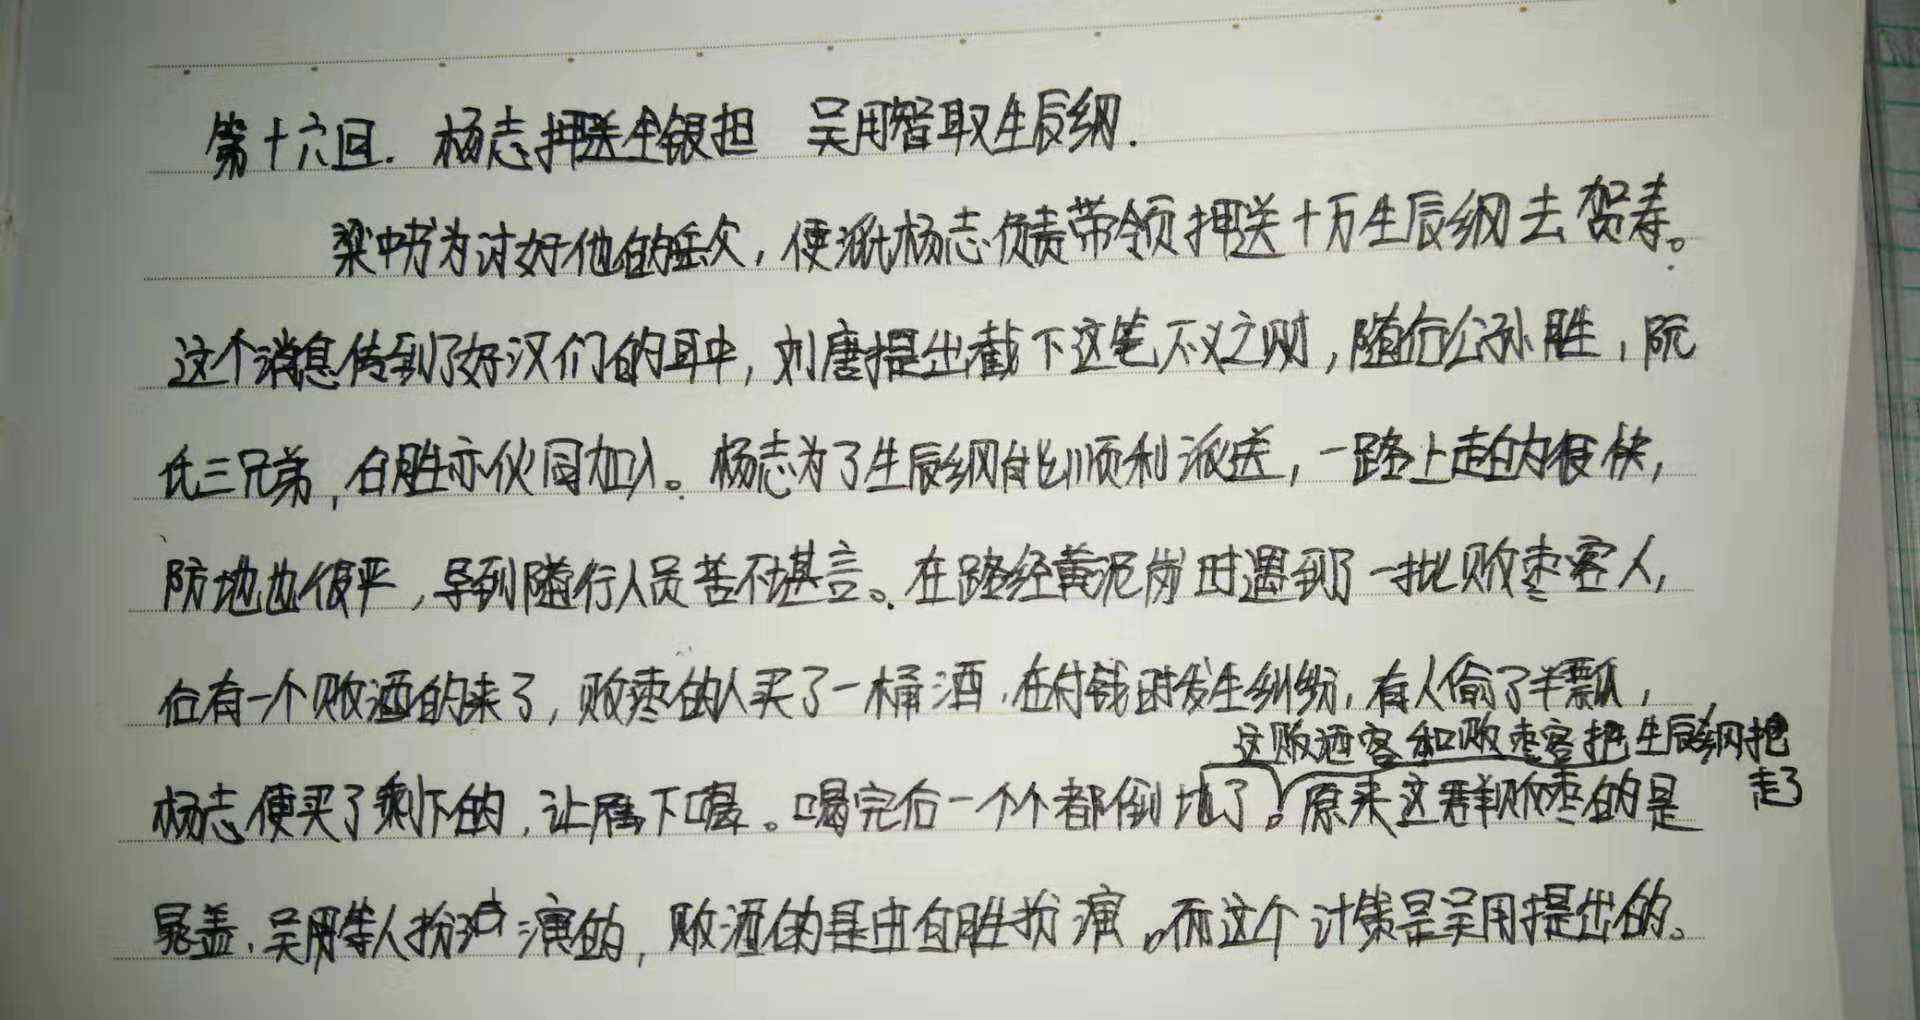 第十六回. 杨志押送金银担 吴用智取生辰纲.
梁中书为讨好他的岳父，便派杨志负责带领押送十万生辰纲去贺寿。
这个消息传到了好汉们的耳中，刘唐提出截下这笔不义之财，随行公孙胜，阮
氏三兄弟，白胜亦伙同加入。杨志为了生辰纲能顺利派送，一路上走的很快，
防地也很严，导到随行人员苦不堪言。在路经黄泥岗时遇到了一批败枣客人，
后有一个败酒的来了，败枣的人买了一桶酒，在付钱时发生纠纷，有人偷了半瓢，
这败酒客和败枣客把生辰纲抢
走了
杨志便买了剩下的，让属下喝。喝完后一个个都倒地了。原来这群败枣的是
晁盖、吴用等人扮演的，败酒的是由白胜扮演。而这个计策是吴用提出的。